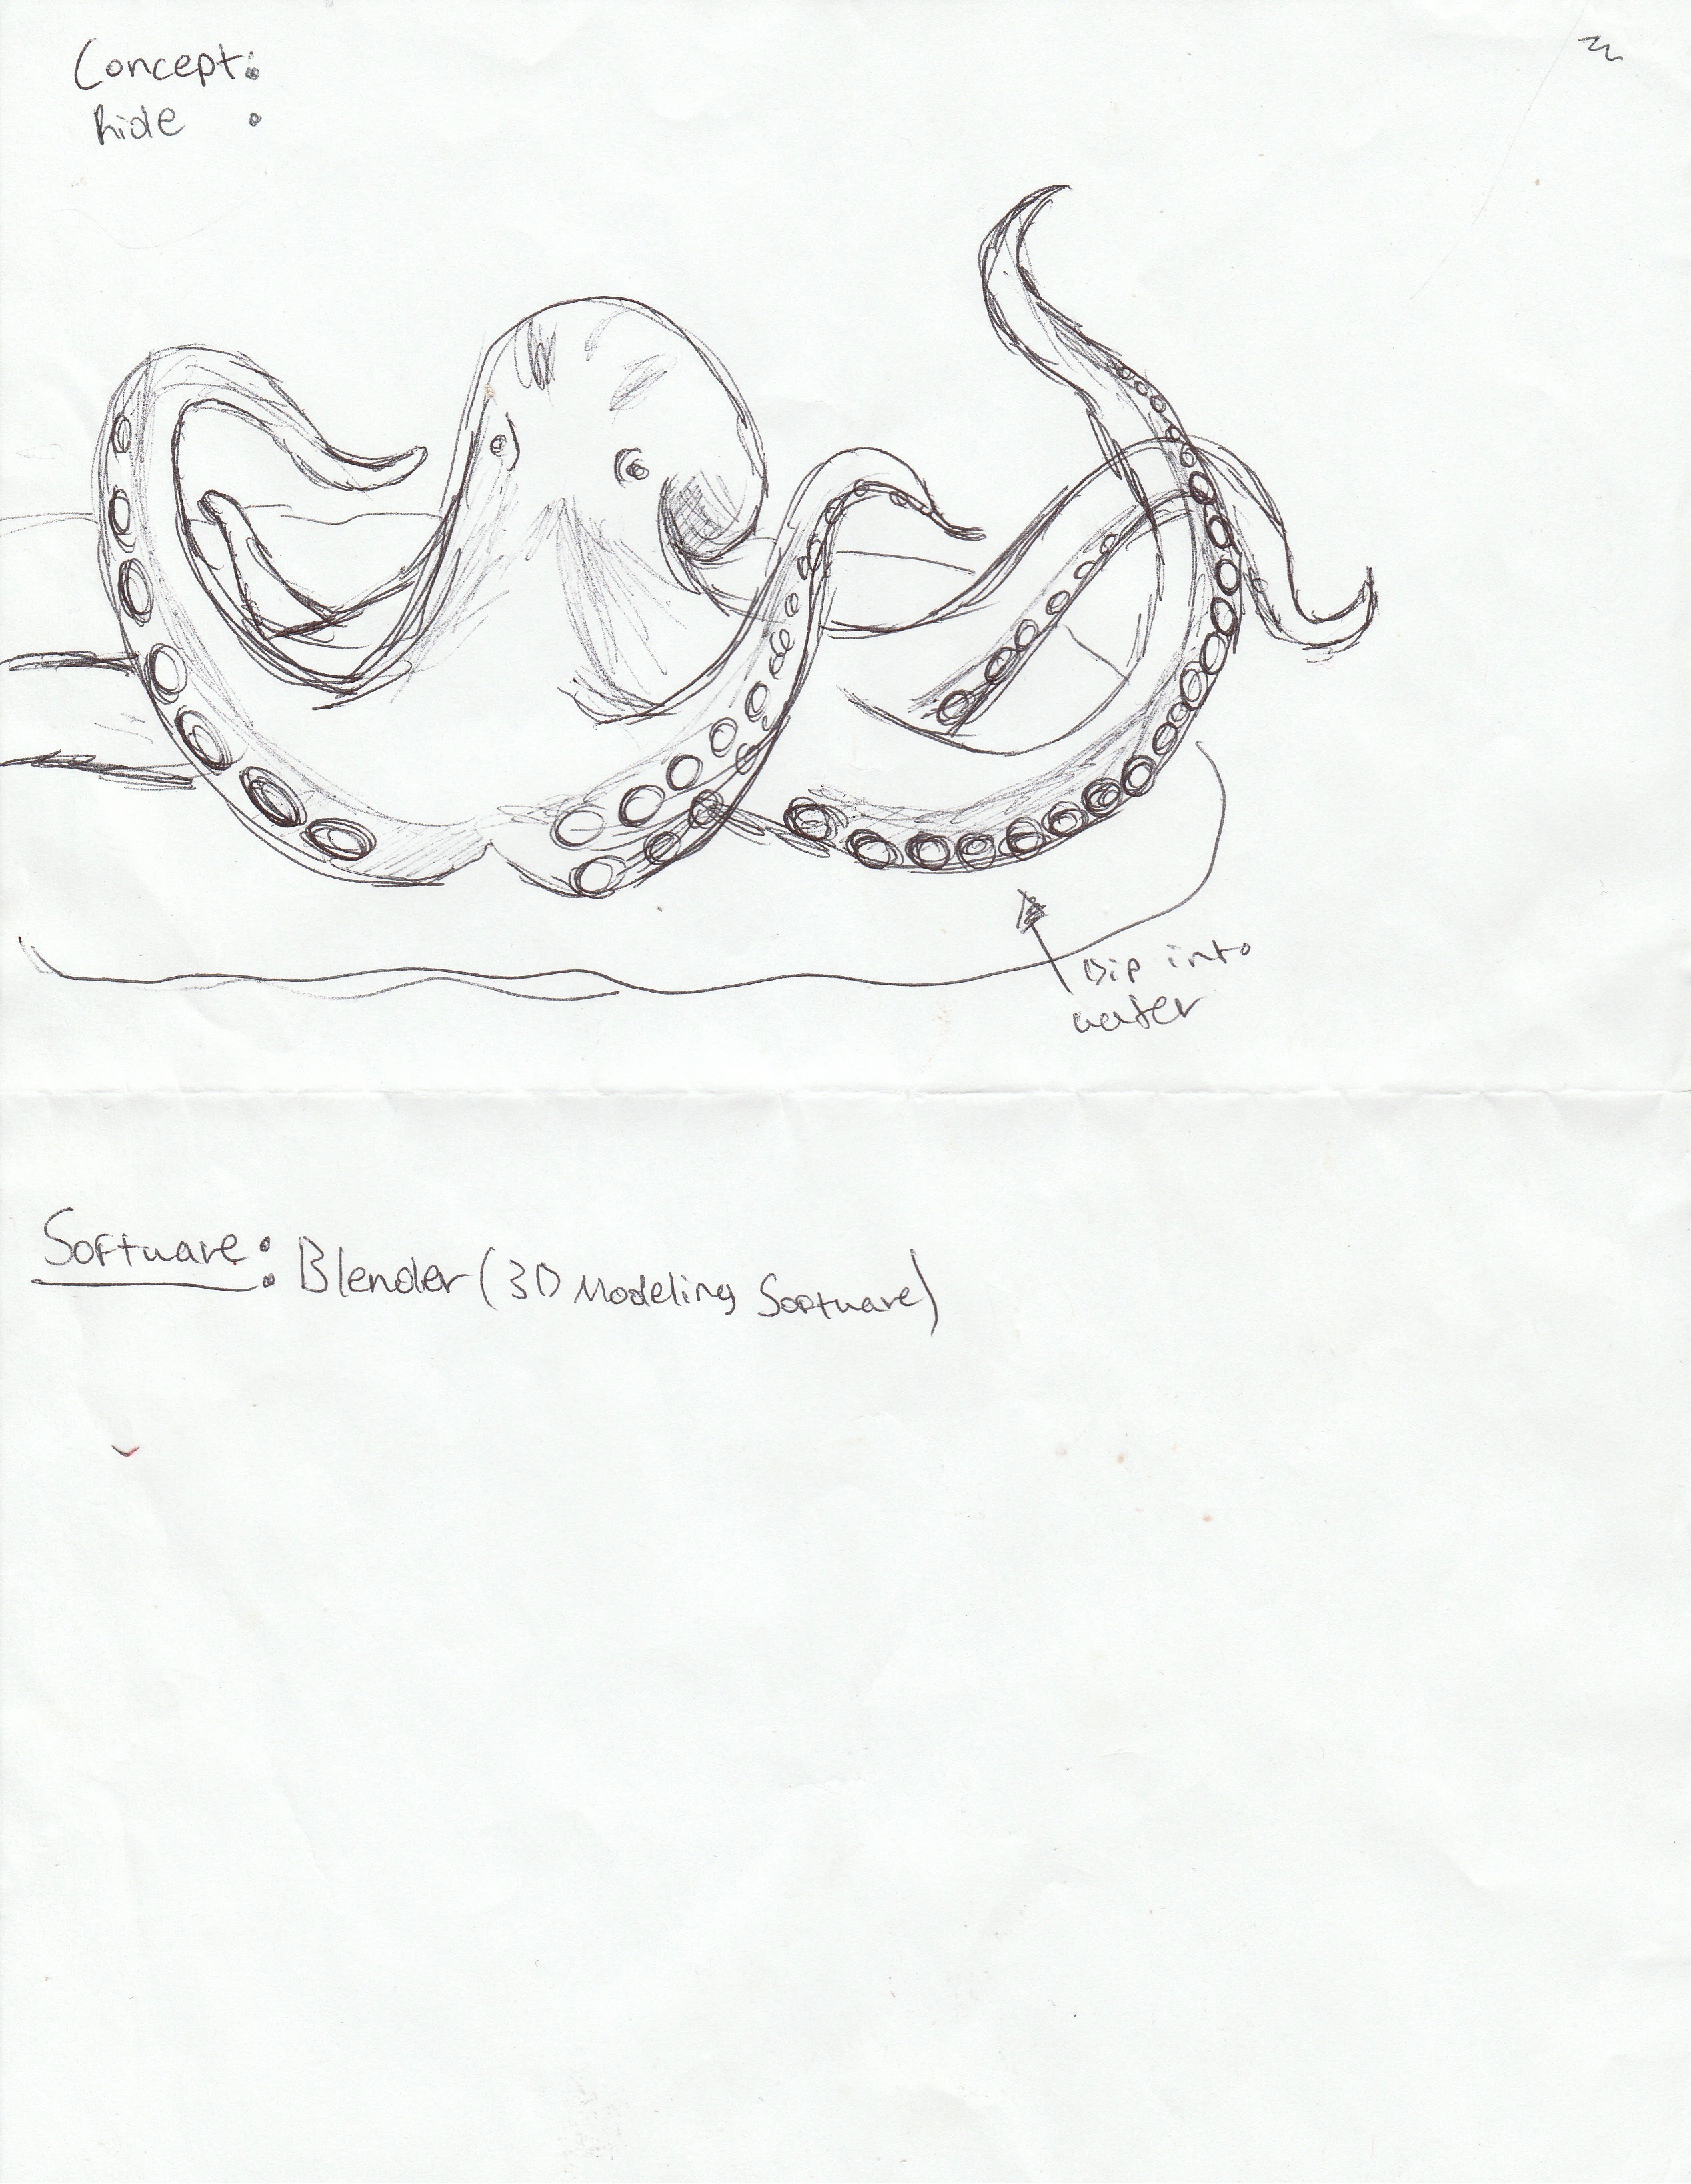 Concept:
Ride :
Dip into
water
Software: Blender (3D Modeling Software)